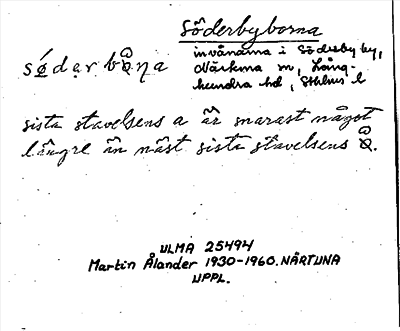 Söderbyborna
invånarna i Söderby by,
Närtuna sn, Lång-
hundra hd, Sthlms l
sista stavelsens a är snarast något
längre än näst sista stavelsens
ULMA 25494
Martin Ålander 1930-1960. NÄRTUNA
UPPL.